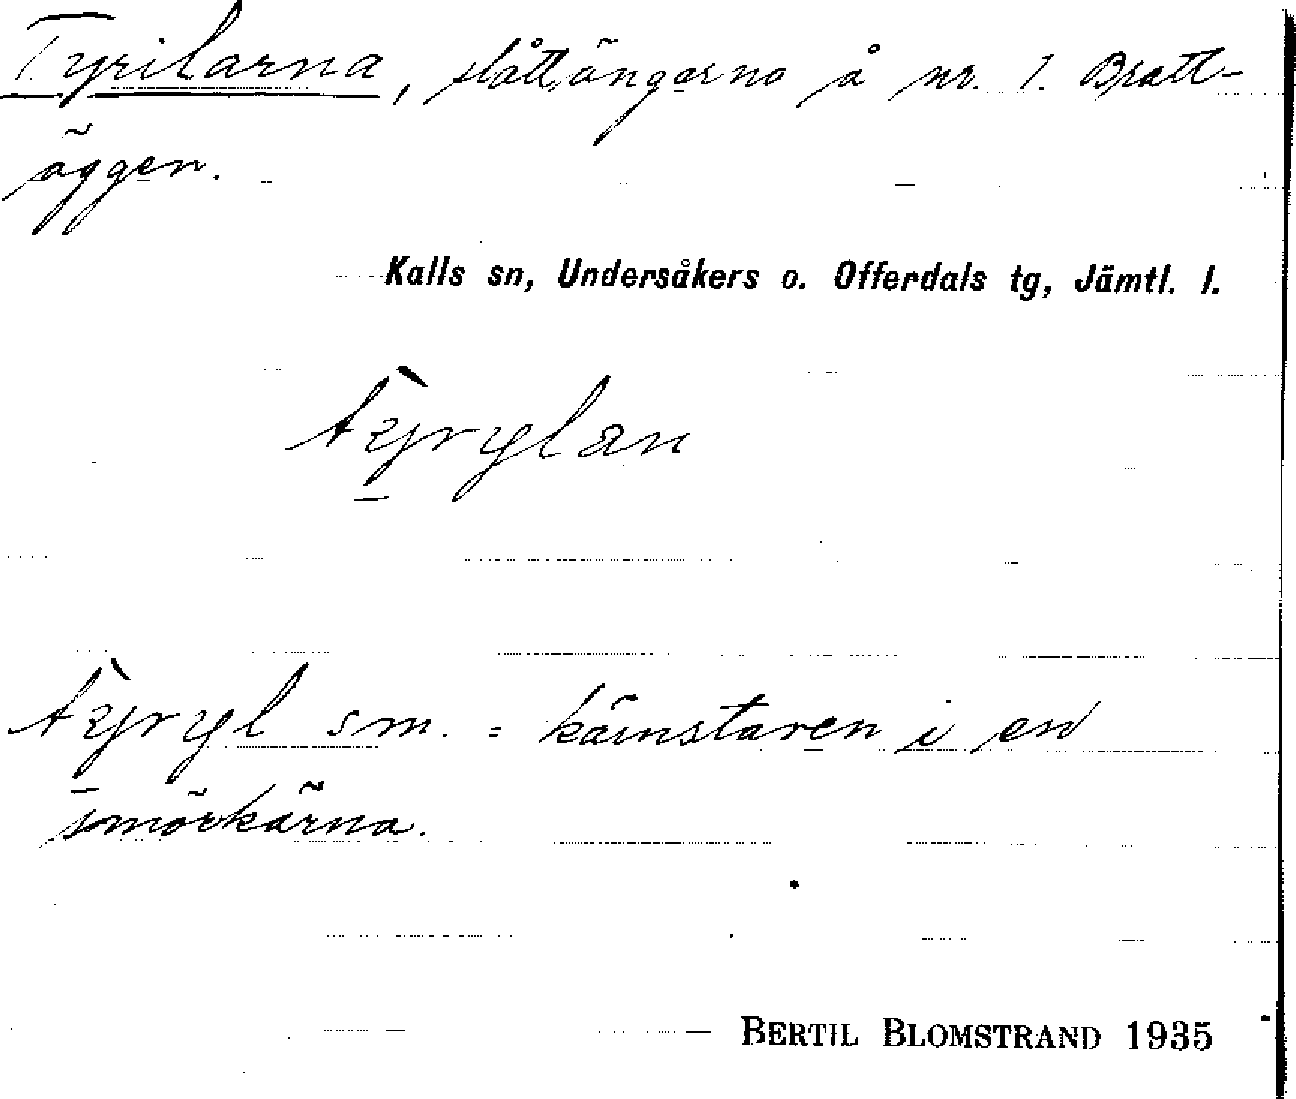 Tyrilarna, slåttängarna å nr. 1. Bratt-
äggen.
Kalls sn, Undersåkers o. Offerdals tg, Jämtl. l.
tỳrylan
tỳryl sm. = kärnstaren i en
smörkärna.
BERTIL BLOMSTRAND 1935